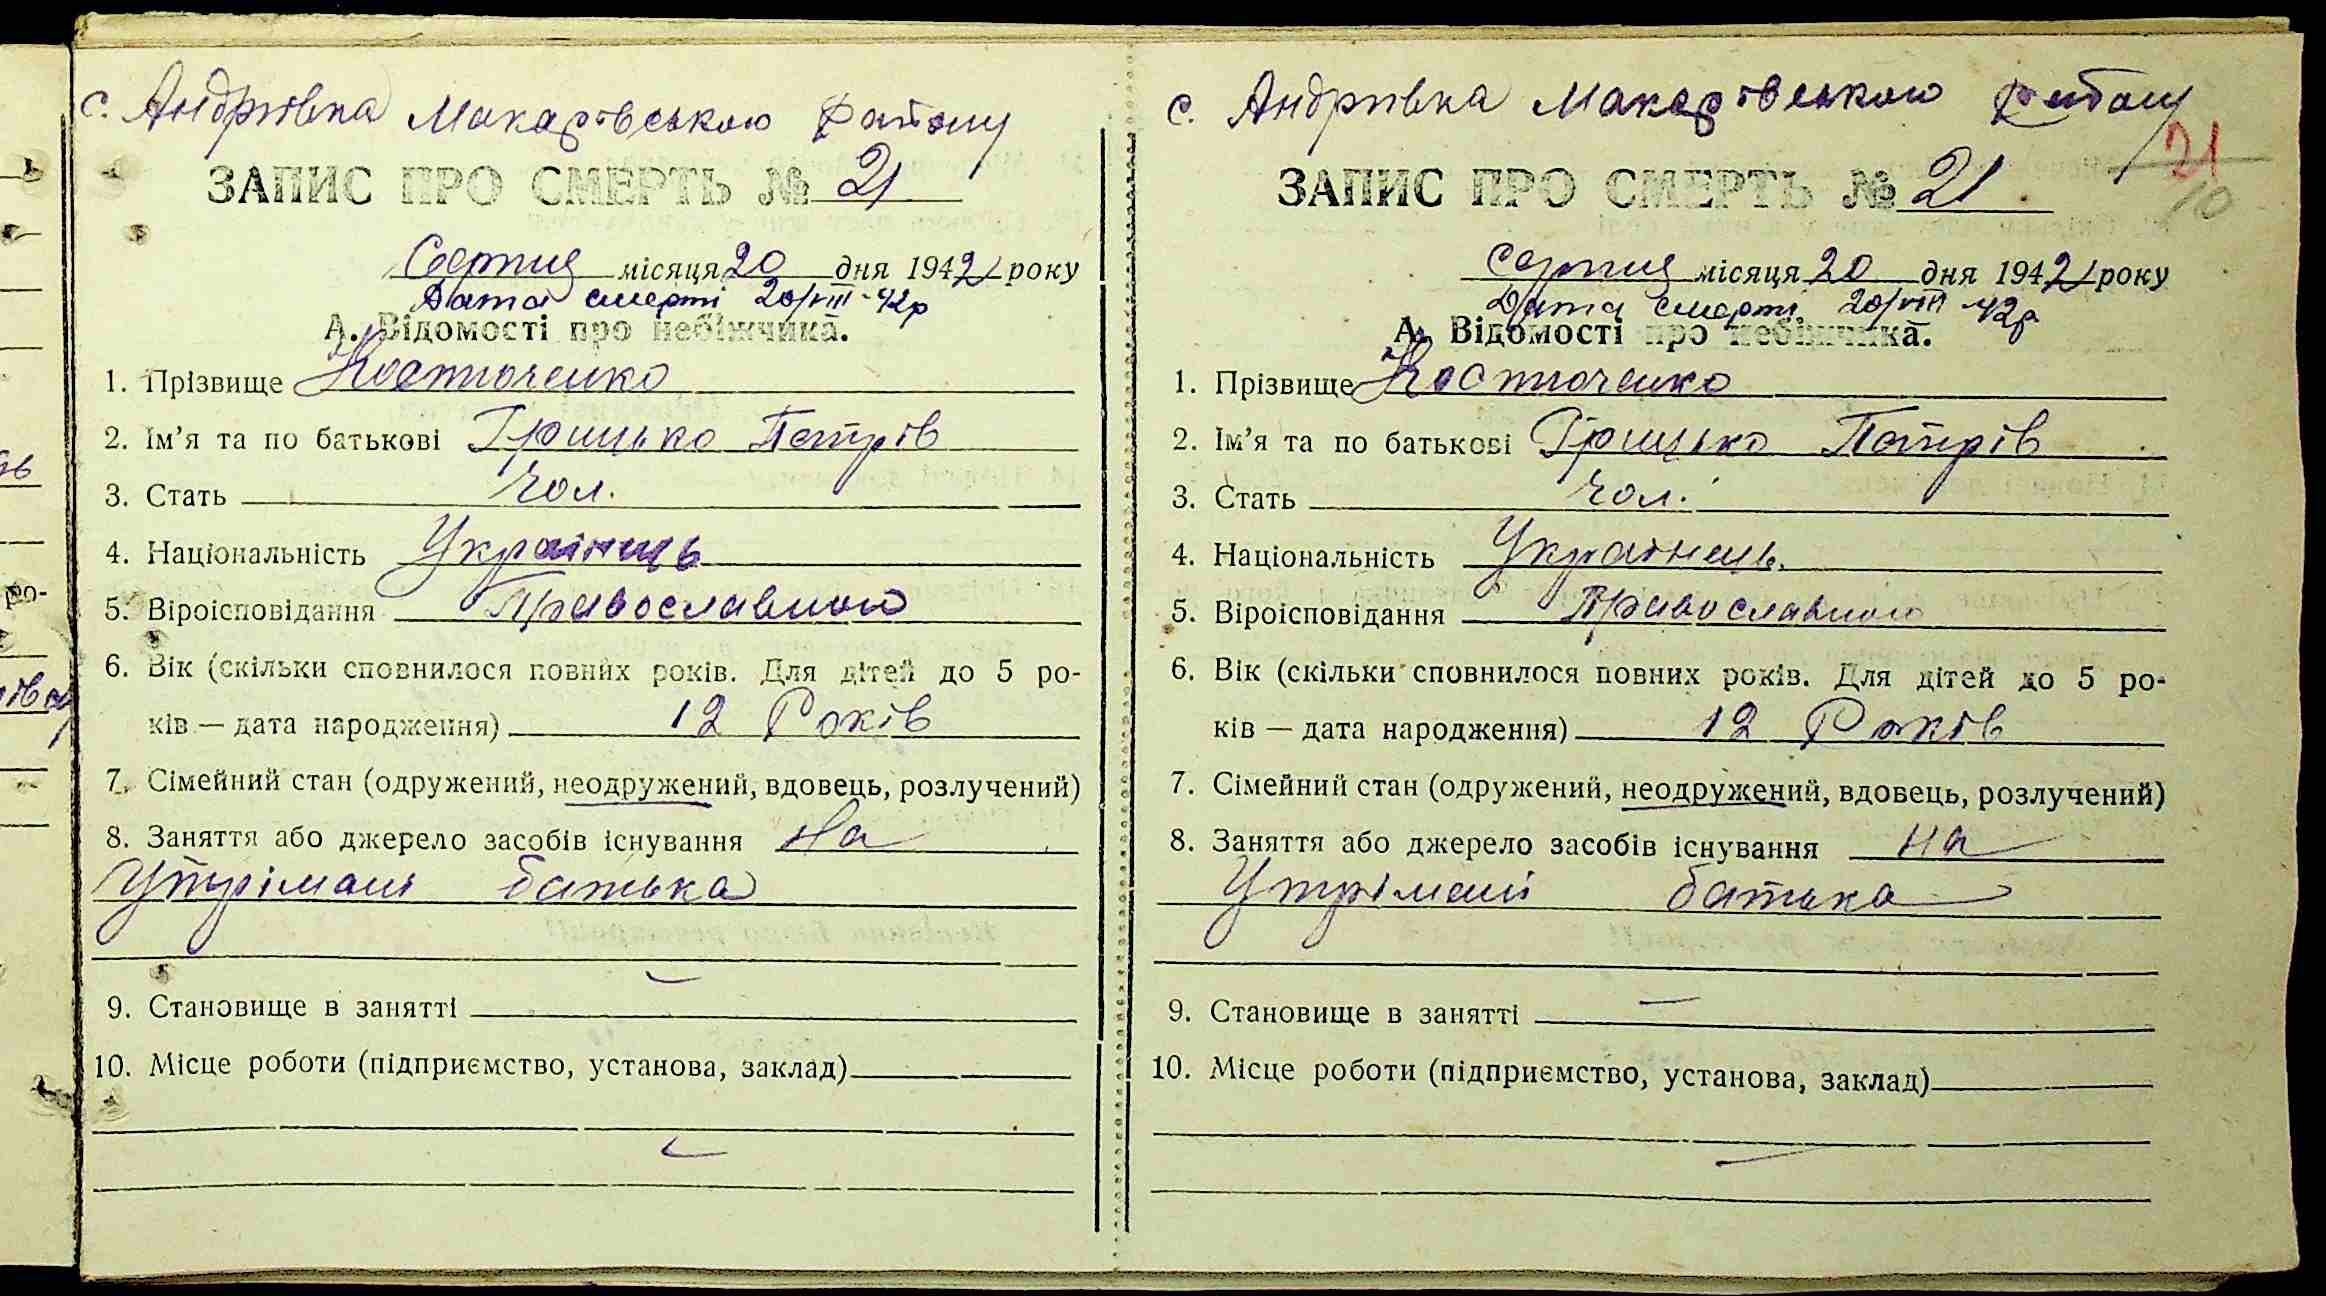 с. Андріівка Макарівського Району
ЗАПИС ПРО СМЕРТЬ № 21
Серпня місяця 20 дня 1942 року
Дата смерті 20/VIII-42р
А. Відомості про небіжчика.
1. Прізвище Костюченко
2. Ім'я та по батькові Грицько Петрів
3. Стать чол.
4. Національність Українець
5. Віроісповідання Православного
6. Вік (скільки сповнилося повних років. Для дітей до 5 ро-
ків — дата народження) 12 Років
7. Сімейний стан (одружений, неодружений, вдовець, розлучений)
8. Заняття або джерело засобів існування на
Утрімані батька
9. Становище в занятті —
10. Місце роботи (підприємство, установа, заклад)
—
с. Андріівка Макарівського Району
21
10
ЗАПИС ПРО СМЕРТЬ № 21
Серпня місяця 20 дня 1942 року
Дата смерті 20/VIII-42р
А. Відомості про небіжчика.
1. Прізвище Костюченко
2. Ім'я та по батькові Грицько Петрів
3. Стать чол.
4. Національність Українець.
5. Віроісповідання Православного
6. Вік (скільки сповнилося повних років. Для дітей до 5 ро-
ків — дата народження) 12 Років
7. Сімейний стан (одружений, неодружений, вдовець, розлучений)
8. Заняття або джерело засобів існування на
Утрімані батька
9. Становище в занятті —
10. Місце роботи (підприємство, установа, заклад)
—